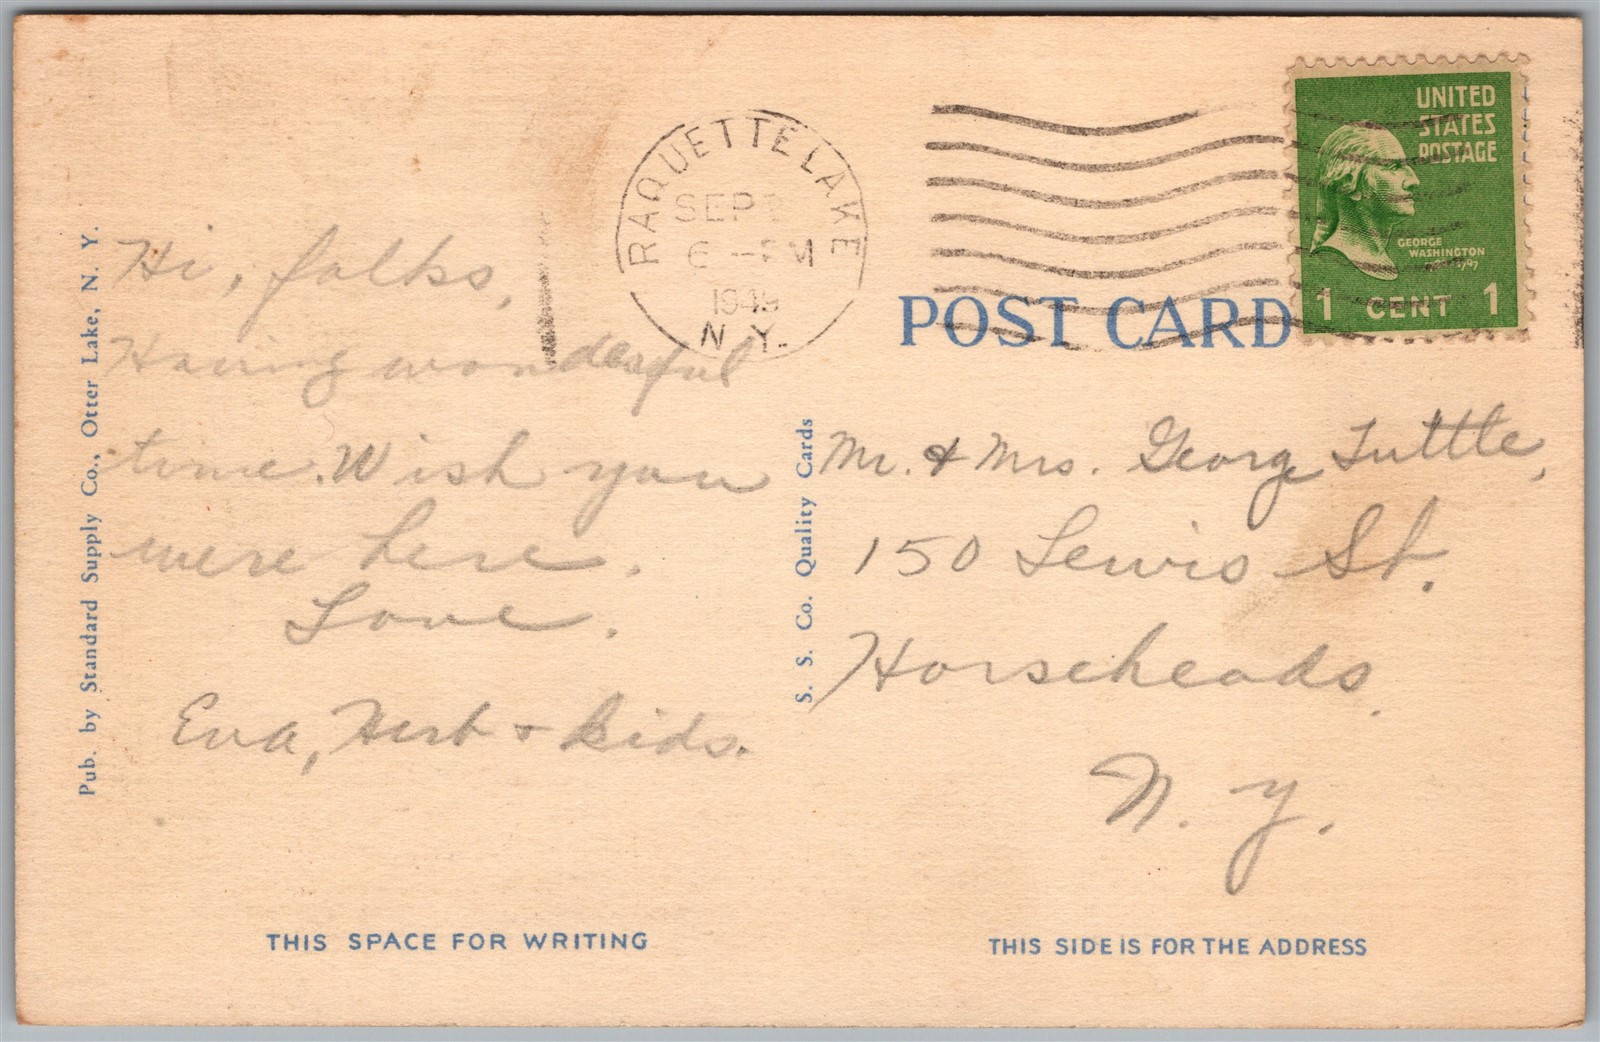 Pub. by Standard Supply Co., Otter Lake, N. Y.
Hi, folks,
Having wonderful
time. Wish you
were here.
Love.
Eva, Herb + kids.
THIS SPACE FOR WRITING
RAQUETTE LAKE
SEP
6 - PM
1949
N. Y.
POST CARD
UNITED
STATES
POSTAGE
GEORGE
WASHINGTON
1 CENT 1
S. S. Co. Quality Cards
Mr. & Mrs. George Tuttle,
150 Lewis St.
Horseheads
N. Y.
THIS SIDE IS FOR THE ADDRESS